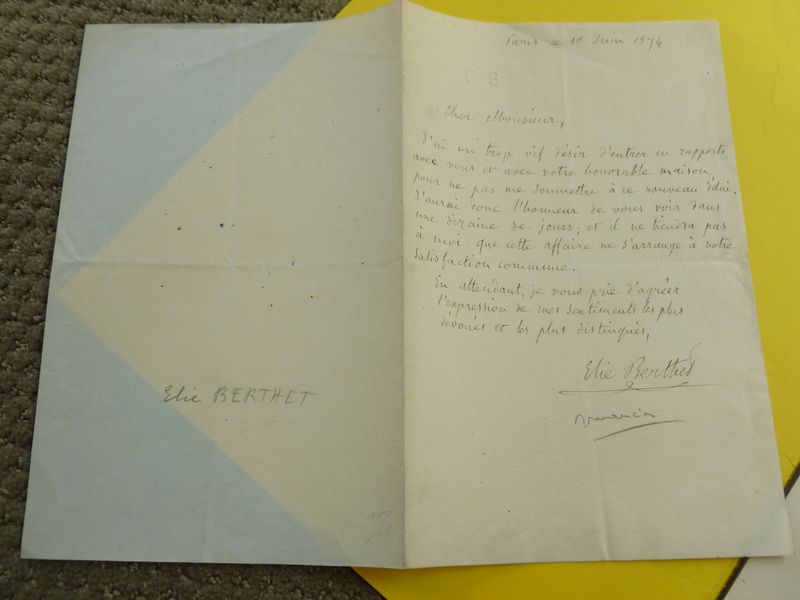 Paris ce 10 Juin 1874
E B
Cher Monsieur,
J'ai un trop vif désir d'entrer en rapports
avec vous et avec votre honorable maison
pour ne pas me soumettre à ce nouveau délai.
J'aurai donc l'honneur de vous voir dans
une dizaine de jours; et il ne tiendra pas
à moi que cette affaire ne s'arrange à notre
satisfaction commune.
En attendant, je vous prie d'agréer
l'expression de mes sentiments les plus
dévoués et les plus distingués,
Elie Berthet
romancier
Elie BERTHET